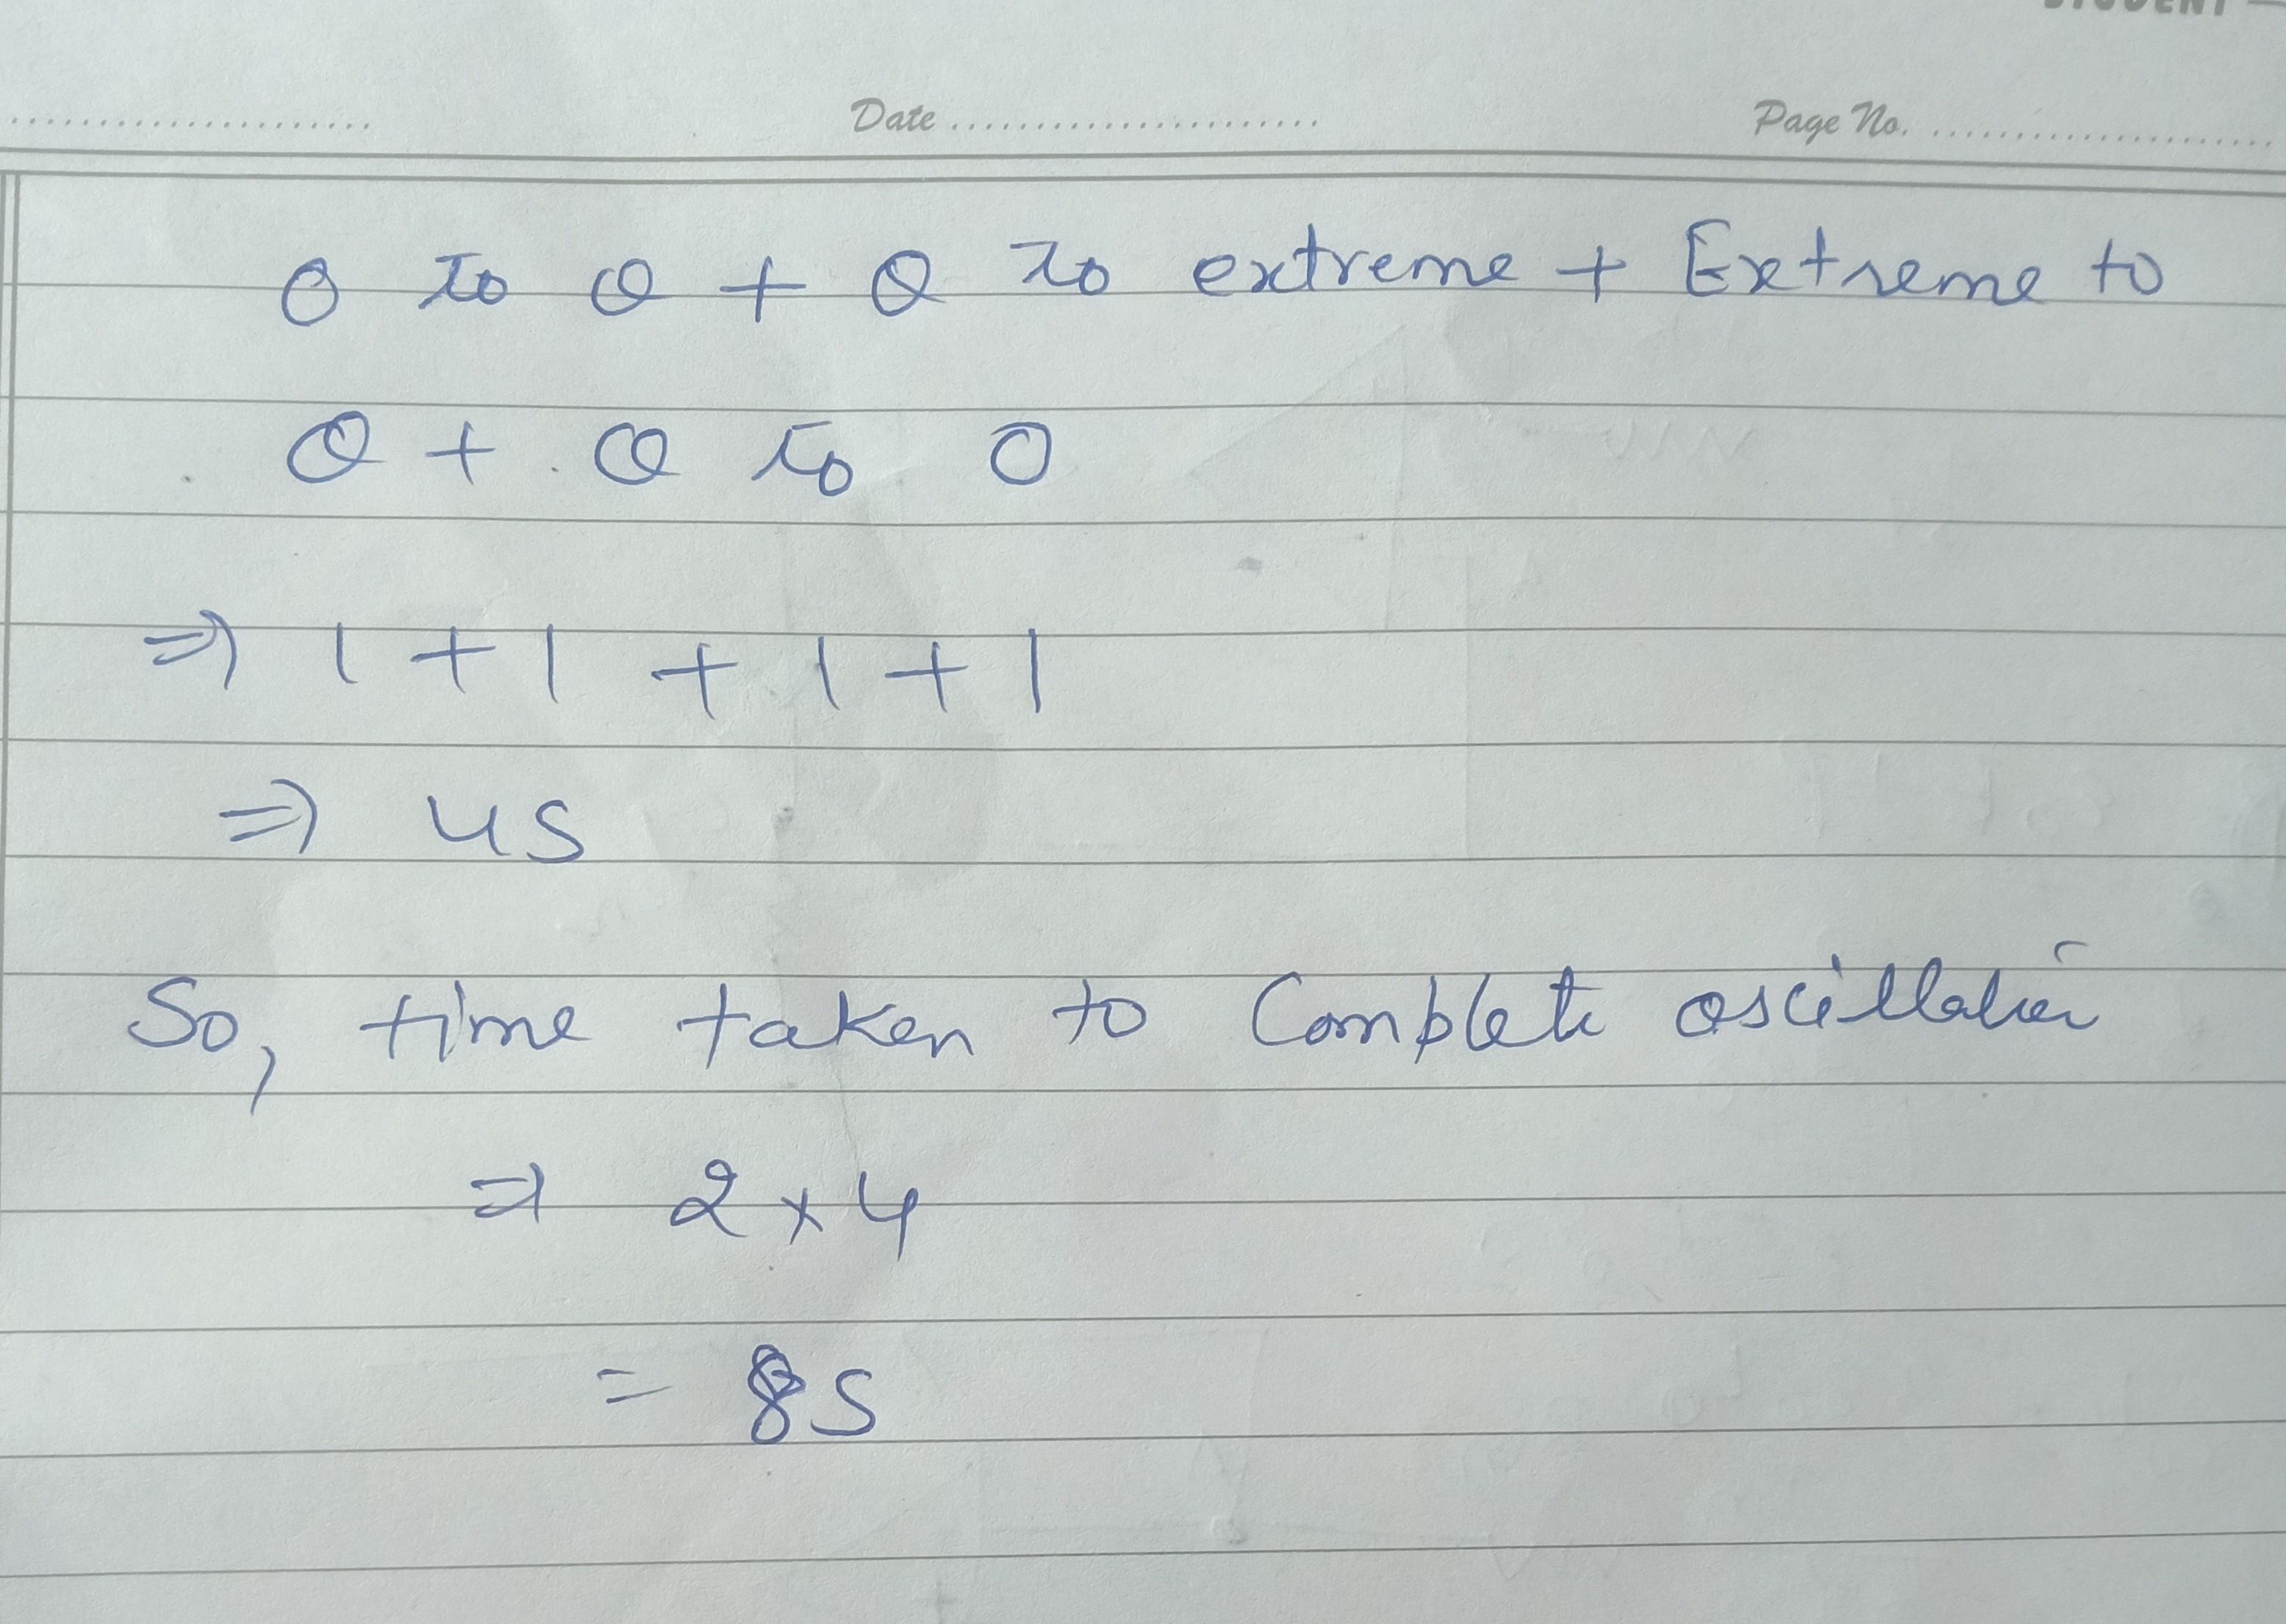 STUDENT
Date ........................ Page No. ........................
O to Q + Q to extreme + Extreme to
Q + Q to O
⇒ 1 + 1 + 1 + 1
⇒ 4s
So, time taken to Complete oscillation
⇒ 2 × 4
= 8s